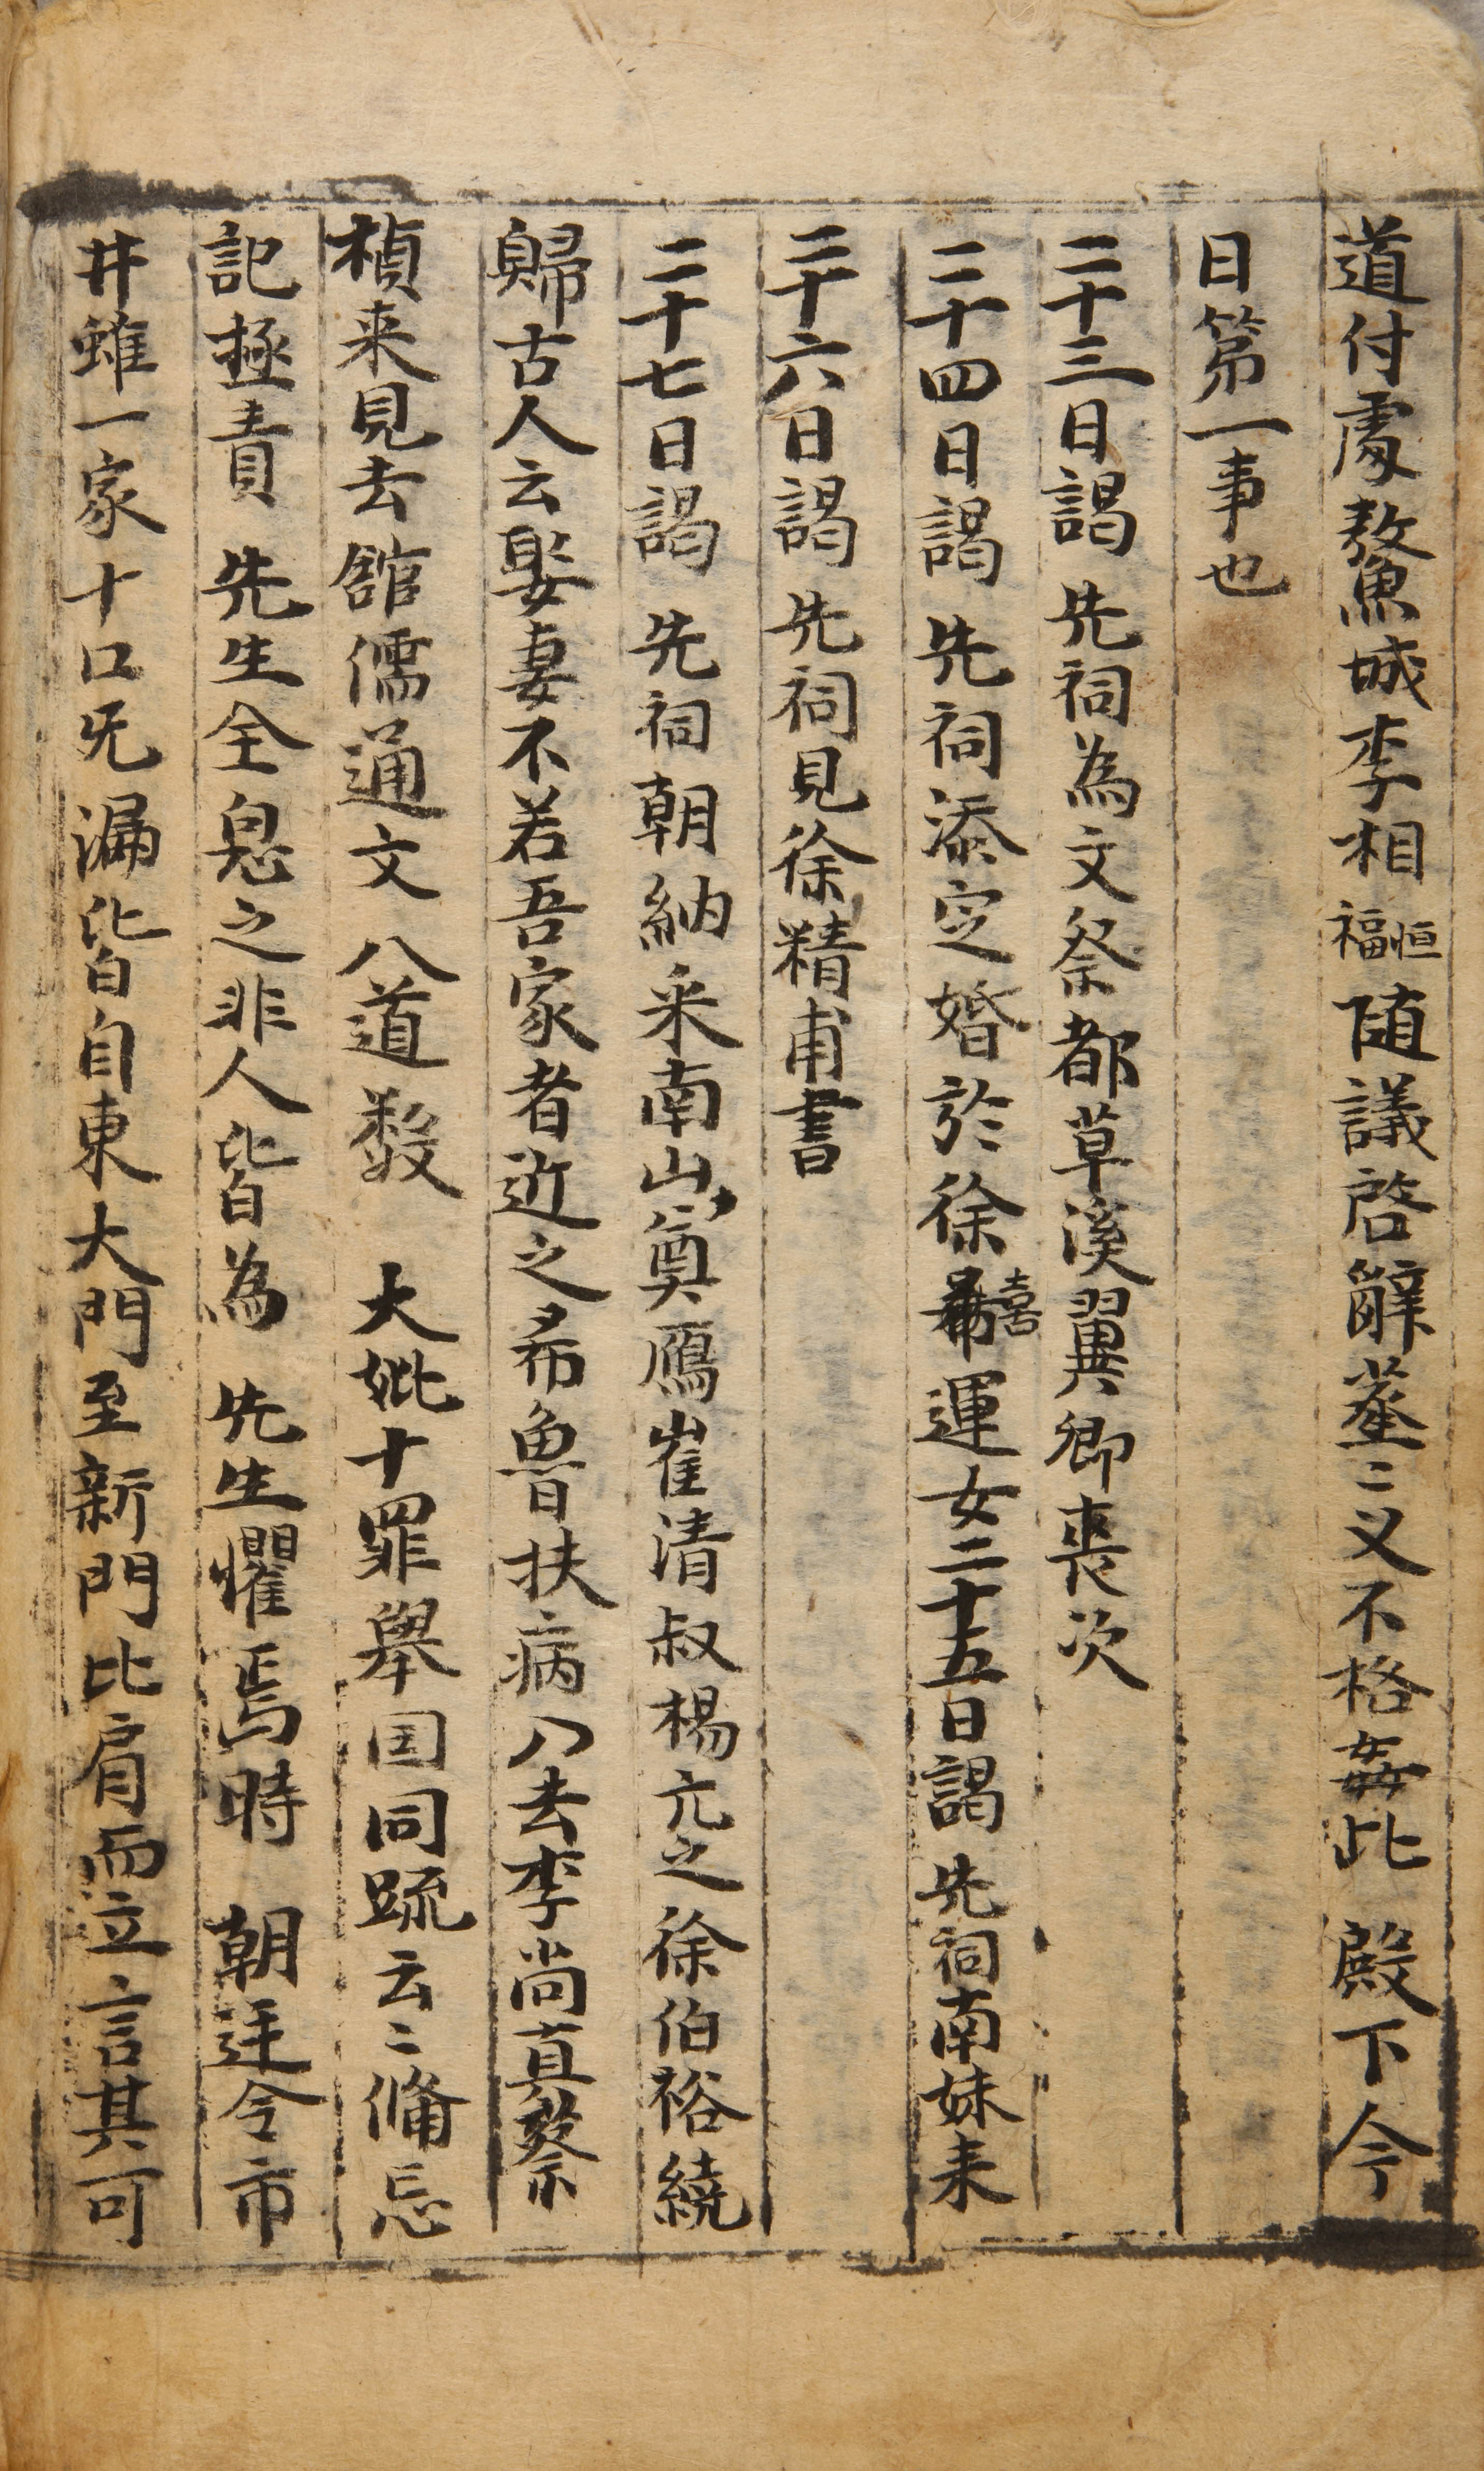 道付處鰲城李相恒福随議啓辭蓋〻又不格姦此 殿下今
日第一事也
二十三日謁 先祠為文祭都草溪翼卿喪次
二十四日謁 先祠添定婚於徐希喜運女二十五日謁 先祠南妹来
二十六日謁 先祠見徐精甫書
二十七日謁 先祠朝納采南山奠鴈崔清叔楊亢之徐伯裕繞
歸古人云娶妻不若吾家者近之希魯扶病入去李尚真察
楨来見去舘儒通文八道數 大妣十罪舉国同疏云〻備忘
記極責 先生全恩之非人皆為 先生懼焉時 朝廷令市
井雖一家十口旡漏皆自東大門至新門比肩而立言其可